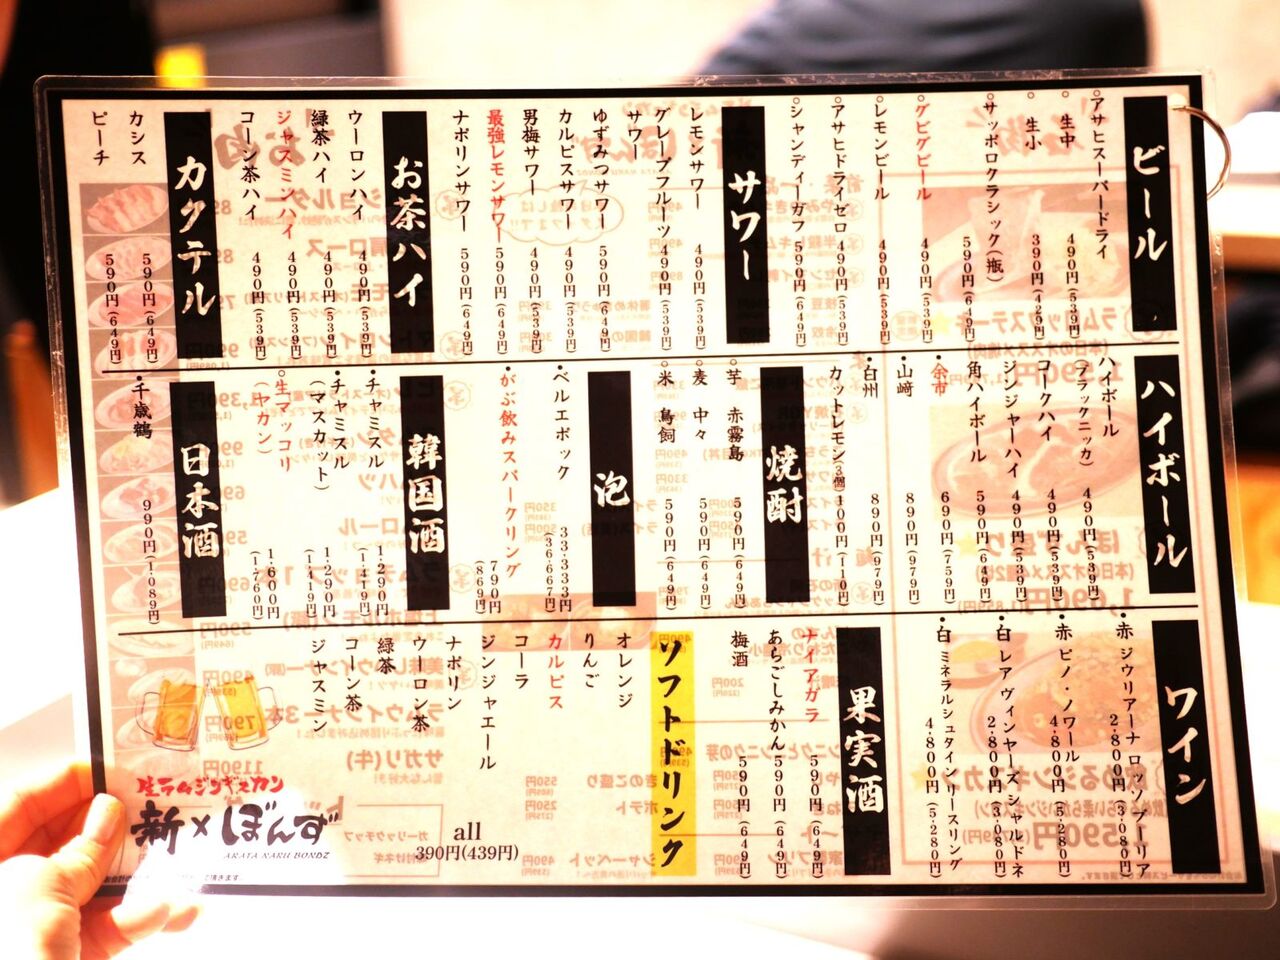 ビール
・アサヒスーパードライ
○ 生中 490円(539円)
○ 生小 390円(429円)
・サッポロクラシック(瓶) 590円(649円)
・グビグビール 490円(539円)
・レモンビール 490円(539円)
・アサヒドライゼロ 490円(539円)
・シャンディーガフ 590円(649円)
サワー
レモンサワー 490円(539円)
グレープフルーツサワー 490円(539円)
ゆずみつサワー 590円(649円)
カルピスサワー 490円(539円)
男梅サワー 490円(539円)
最強レモンサワー 590円(649円)
ナポリンサワー 590円(649円)
お茶ハイ
ウーロンハイ 490円(539円)
緑茶ハイ 490円(539円)
ジャスミンハイ 490円(539円)
コーン茶ハイ 490円(539円)
カクテル
カシス 590円(649円)
ピーチ 590円(649円)
ハイボール
ハイボール
(ブラックニッカ) 490円(539円)
コークハイ 490円(539円)
ジンジャーハイ 490円(539円)
角ハイボール 590円(649円)
・余市 690円(759円)
・山﨑 890円(979円)
・白州 890円(979円)
カットレモン(3個) 100円(110円)
焼酎
○芋 赤霧島 590円(649円)
○麦 中々 590円(649円)
○米 鳥飼 590円(649円)
泡
・ベルエポック 33,333円(36,667円)
・がぶ飲みスパークリング 790円(869円)
韓国酒
・チャミスル 1,290円(1,419円)
・チャミスル(マスカット) 1,290円(1,419円)
・生マッコリ(ヤカン) 1,600円(1,760円)
日本酒
・千歳鶴 990円(1,089円)
ワイン
・赤 ジウリアーナ ロッソ プーリア 2,800円(3,080円)
・赤 ピノ・ノワール 4,800円(5,280円)
・白 レアヴィンヤーズ シャルドネ 2,800円(3,080円)
・白 ミネラルシュタイン リースリング 4,800円(5,280円)
果実酒
ナイアガラ 590円(649円)
あらごしみかん 590円(649円)
梅酒 590円(649円)
ソフトドリンク
オレンジ
りんご
カルピス
コーラ
ジンジャエール
ナポリン
ウーロン茶
緑茶
コーン茶
ジャスミン
all
390円(439円)
生ラムジンギスカン
新×ぼんず
ARATA NARU BONDZ